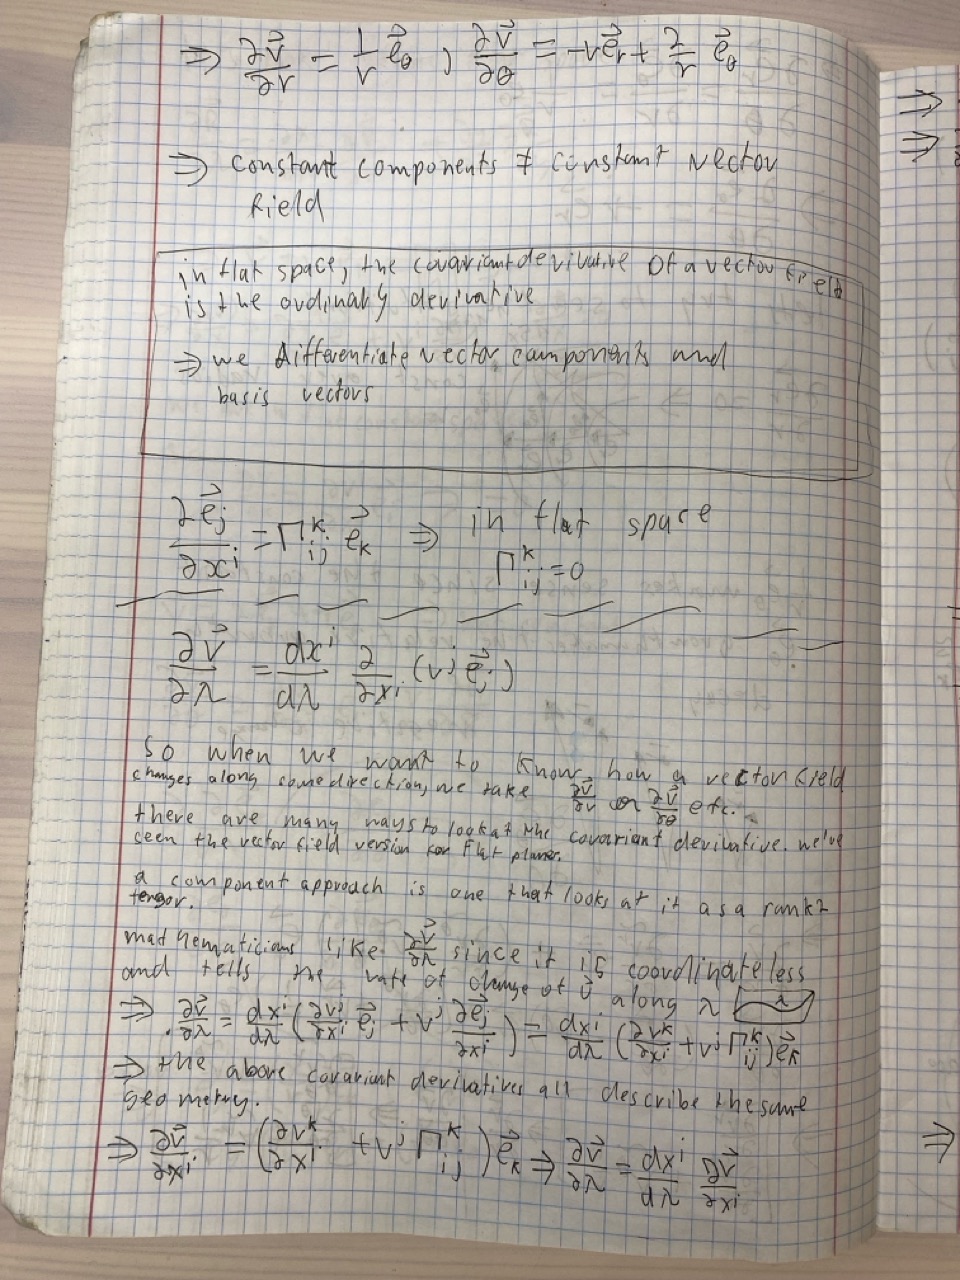 ⇒ ∂v⃗/∂r = 1/r e⃗_θ , ∂v⃗/∂θ = -r e⃗_r + 2/r e⃗_θ
⇒ constant components ≠ constant vector
field
in flat space, the covariant derivative of a vector field
is the ordinary derivative
⇒ we differentiate vector components and
basis vectors
∂e⃗_j/∂x^i = Γ^k_ij e⃗_k ⇒ in flat space
Γ^k_ij = 0
∂v⃗/∂λ = dx^i/dλ ∂/∂x^i (v^j e⃗_j)
so when we want to know how a vector field
changes along some direction, we take ∂v⃗/∂r or ∂v⃗/∂θ etc.
there are many ways to look at the covariant derivative. we've
seen the vector field version for flat planes.
a component approach is one that looks at it as a rank 2
tensor.
mathematicians like ∂v⃗/∂λ since it is coordinateless
and tells the rate of change of v⃗ along λ
⇒ ∂v⃗/∂λ = dx^i/dλ (∂v^j/∂x^i e⃗_j + v^j ∂e⃗_j/∂x^i) = dx^i/dλ (∂v^k/∂x^i + v^j Γ^k_ij) e⃗_k
⇒ the above covariant derivatives all describe the same
geometry.
⇒ ∂v⃗/∂x^i = (∂v^k/∂x^i + v^j Γ^k_ij) e⃗_k ⇒ ∂v⃗/∂λ = dx^i/dλ ∂v⃗/∂x^i